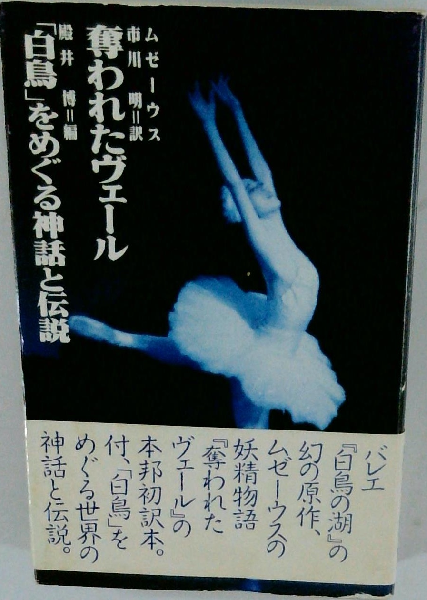 ムゼーウス
市川 明＝訳
奪われたヴェール
殿井 博＝編
「白鳥」をめぐる神話と伝説
バレエ
『白鳥の湖』の
幻の原作、
ムゼーウスの
妖精物語
『奪われた
ヴェール』の
本邦初訳本。
付、「白鳥」を
めぐる世界の
神話と伝説。